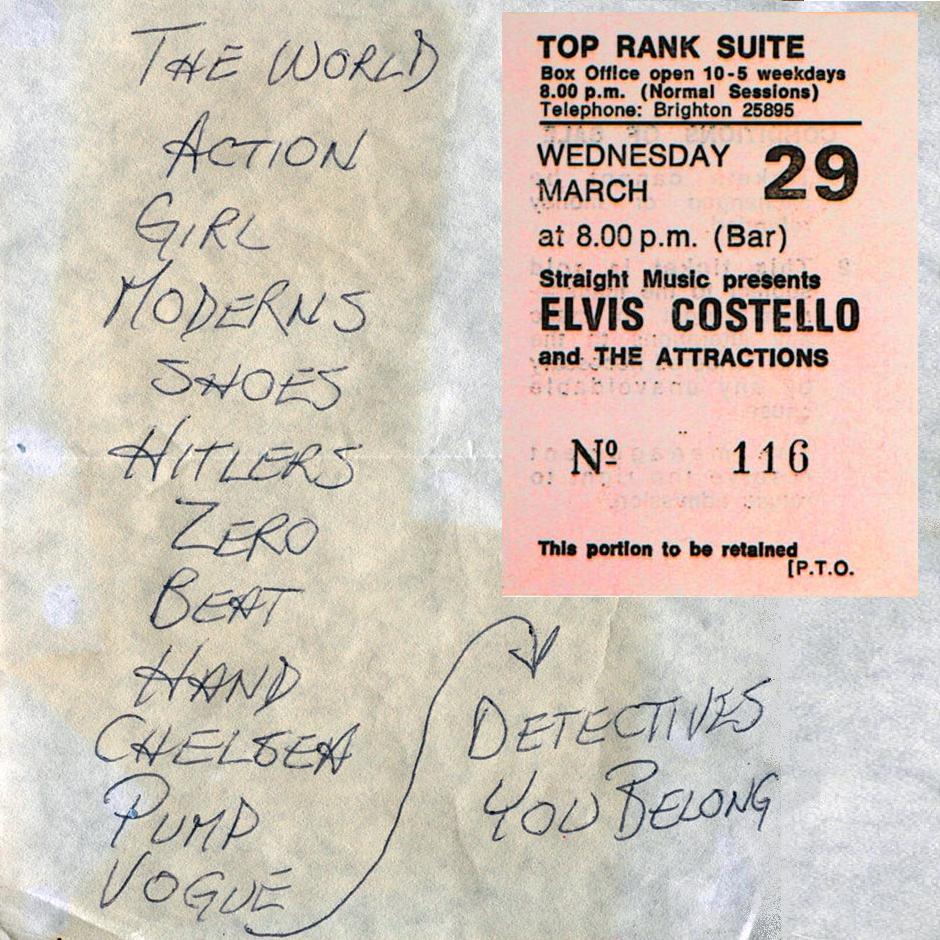 THE WORLD
ACTION
GIRL
MODERNS
SHOES
HITLERS
ZERO
BEAT
HAND
CHELSEA
PUMP
VOGUE
DETECTIVES
YOU BELONG
TOP RANK SUITE
Box Office open 10-5 weekdays
8.00 p.m. (Normal Sessions)
Telephone: Brighton 25895
WEDNESDAY 29
MARCH
at 8.00 p.m. (Bar)
Straight Music presents
ELVIS COSTELLO
and THE ATTRACTIONS
Nº 116
This portion to be retained
[P.T.O.